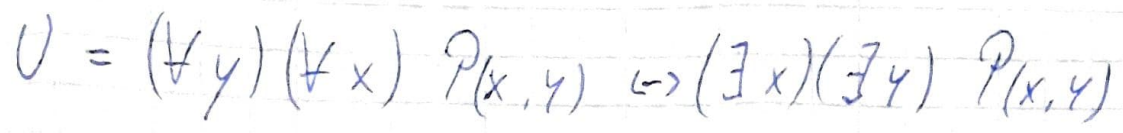 U = (∀y)(∀x) P(x,y) ↔ (∃x)(∃y) P(x,y)